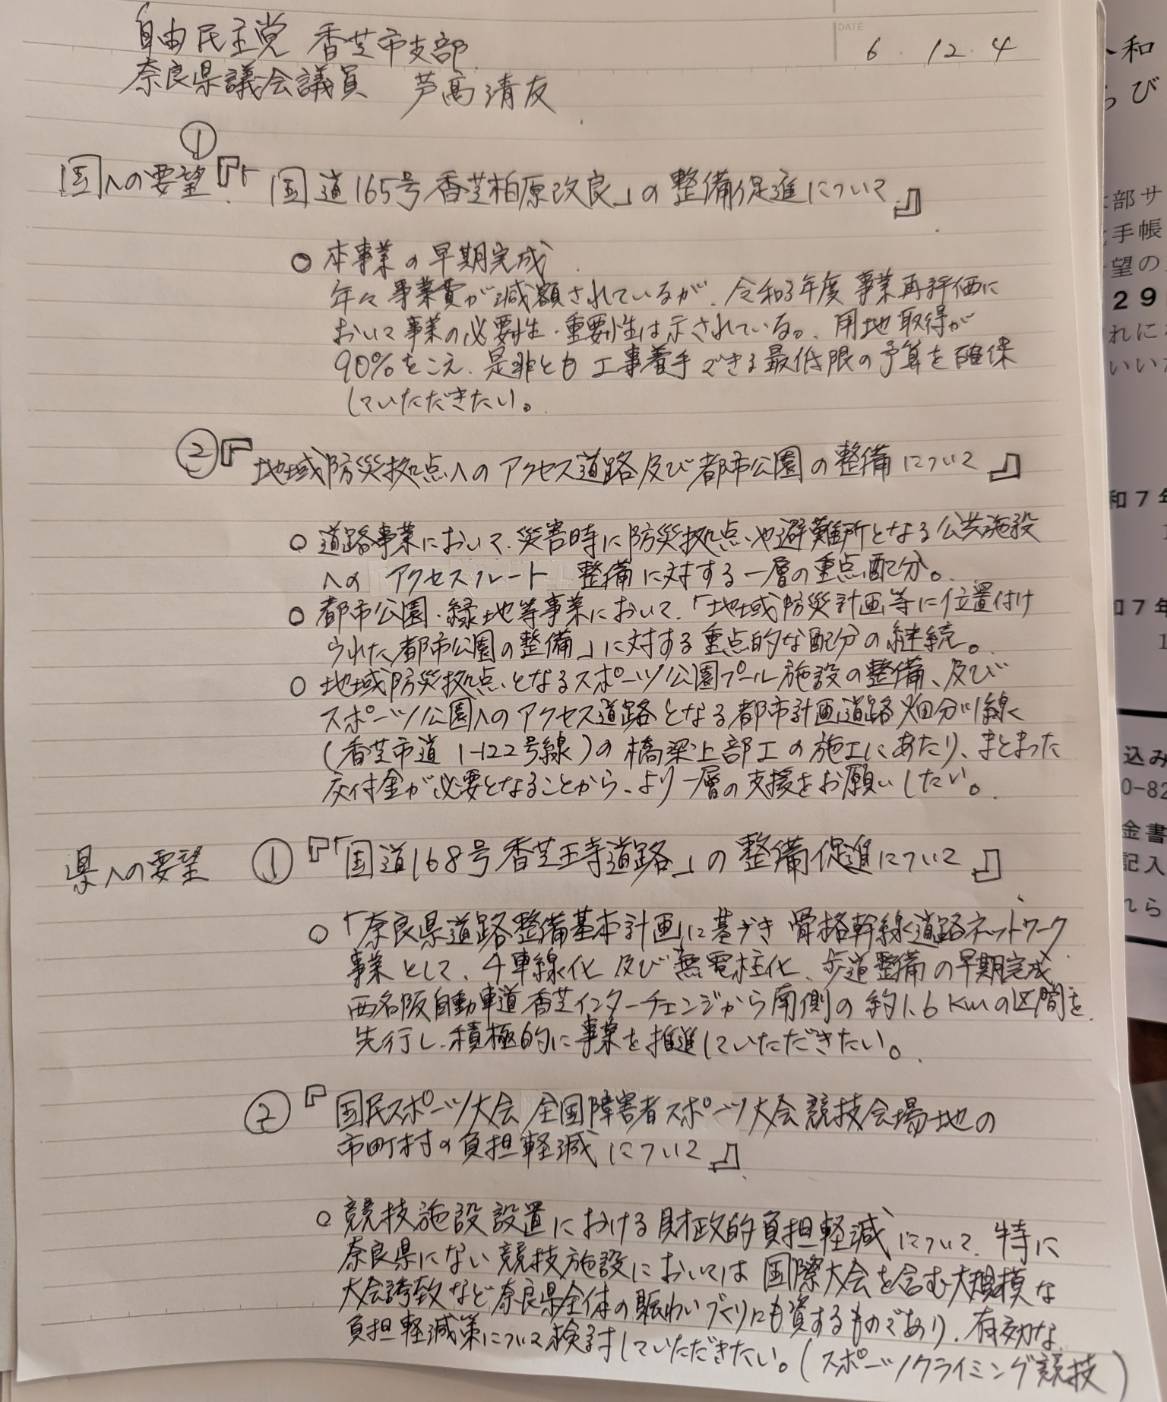 自由民主党 香芝市支部
DATE 6・12・4
奈良県議会議員 芦高清友
国への要望 ①『「国道165号香芝柏原改良」の整備促進について』
○ 本事業の早期完成
年々事業費が減額されているが、令和3年度事業再評価に
おいて事業の必要性・重要性は示されている。用地取得が
90%をこえ、是非とも工事着手できる最低限の予算を確保
していただきたい。
②『地域防災拠点へのアクセス道路及び都市公園の整備について』
○ 道路事業において、災害時に防災拠点や避難所となる公共施設
へのアクセスルート 整備に対する一層の重点配分。
○ 都市公園・緑地等事業において、「地域防災計画等に位置付け
られた都市公園の整備」に対する重点的な配分の継続。
○ 地域防災拠点となるスポーツ公園プール施設の整備、及び
スポーツ公園へのアクセス道路となる都市計画道路畑分川線
(香芝市道 1-122号線)の橋梁上部工の施工にあたり、まとまった
交付金が必要となることから、より一層の支援をお願いしたい。
県への要望 ①『「国道168号香芝王寺道路」の整備促進について』
○「奈良県道路整備基本計画」に基づき骨格幹線道路ネットワーク
事業として、4車線化及び無電柱化、歩道整備の早期完成
西名阪自動車道香芝インターチェンジから南側の約1.6Kmの区間を
先行し、積極的に事業を推進していただきたい。
②『国民スポーツ大会 全国障害者スポーツ大会競技会場地の
市町村の負担軽減について』
○ 競技施設設置における財政的負担軽減について、特に
奈良県にない競技施設においては国際大会を含む大規模な
大会誘致など奈良県全体の賑わいづくりにも資するものであり、有効な
負担軽減策について検討していただきたい。(スポーツクライミング競技)
和
び
部サ
手帳
望の
29
れに
いい
和7年
7年
込み
0-82
金書
記入
れら